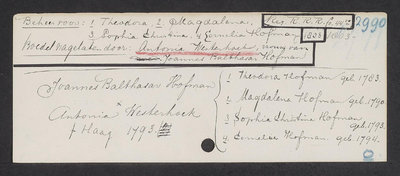 Beheer voor: 1 Theodora, 2 Magdalena,
3 Sophia Christina, 4 Cornelia Hofman
Reg. K.R.K. fo. 44
2990
1803
Boedel nagelaten door: Antonia Westerhoek, vrouw van
Joannes Balthasar Hofman
Joannes Balthasar Hofman
Antonia Westerhoek
† Haag 1793
1 Theodora Hofman geb. 1783.
2 Magdalena Hofman geb. 1790.
3 Sophia Christina Hofman
geb. 1793.
4 Cornelia Hofman. geb. 1794.